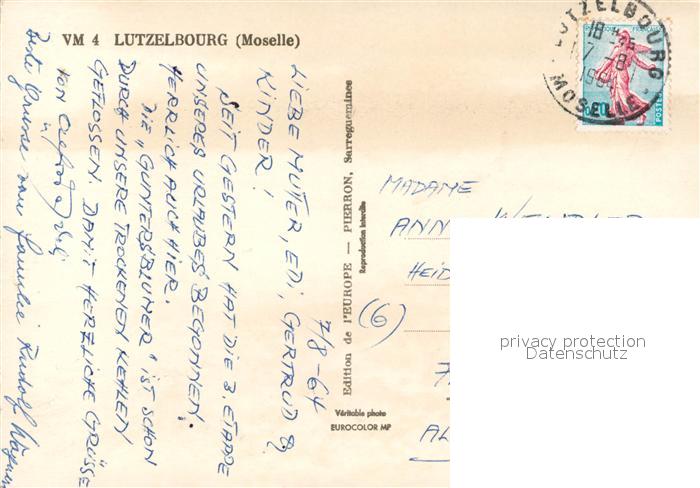 VM 4 LUTZELBOURG (Moselle)
7/8-64
LIEBE MUTER, EDI, GERTRUD &
KINDER!
SEIT GESTERN HAT DIE 3. ETAPPE
UNSERES URLAUBES BEGONNEN.
HERRLICH AUCH HIER.
DIE "GUNTERSBLUMER" IST SCHON
DURCH UNSERE TROCKENEN KEHLEN
GEFLOSSEN. DAMIT HERZLICHE GRÜSSE
VON
Beste Grüsse von Familie Rudolf
Edition de l'EUROPE — PIERRON, Sarreguemines
Reproduction interdite
Véritable photo
EUROCOLOR MP
LUTZELBOURG
18
7-8
MOSELLE
POSTES
MADAME
ANN
HEID
(6)
AL
privacy protection
Datenschutz